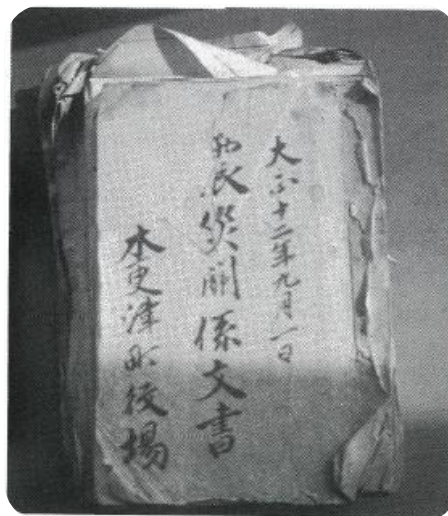 大正十二年九月一日
震災関係文書
木更津町役場